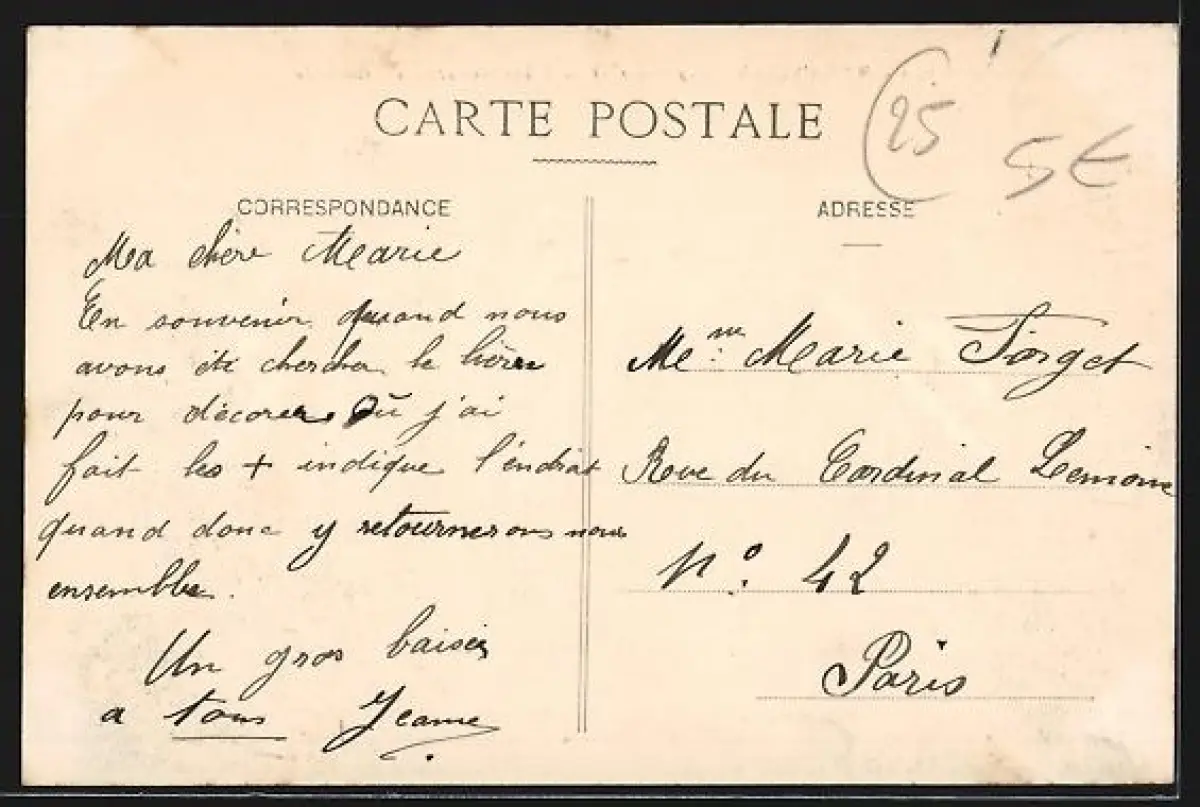 CARTE POSTALE
25
5€
CORRESPONDANCE
Ma chère Marie
En souvenir quand nous
avons été chercher le lierre
pour décorer Où j'ai
fait les + indique l'endroit
quand donc y retournerons nous
ensemble.
Un gros baiser
a tous Jeanne
ADRESSE
Me:lle Marie Forget
Rue du Cardinal Lemoine
No. 42
Paris